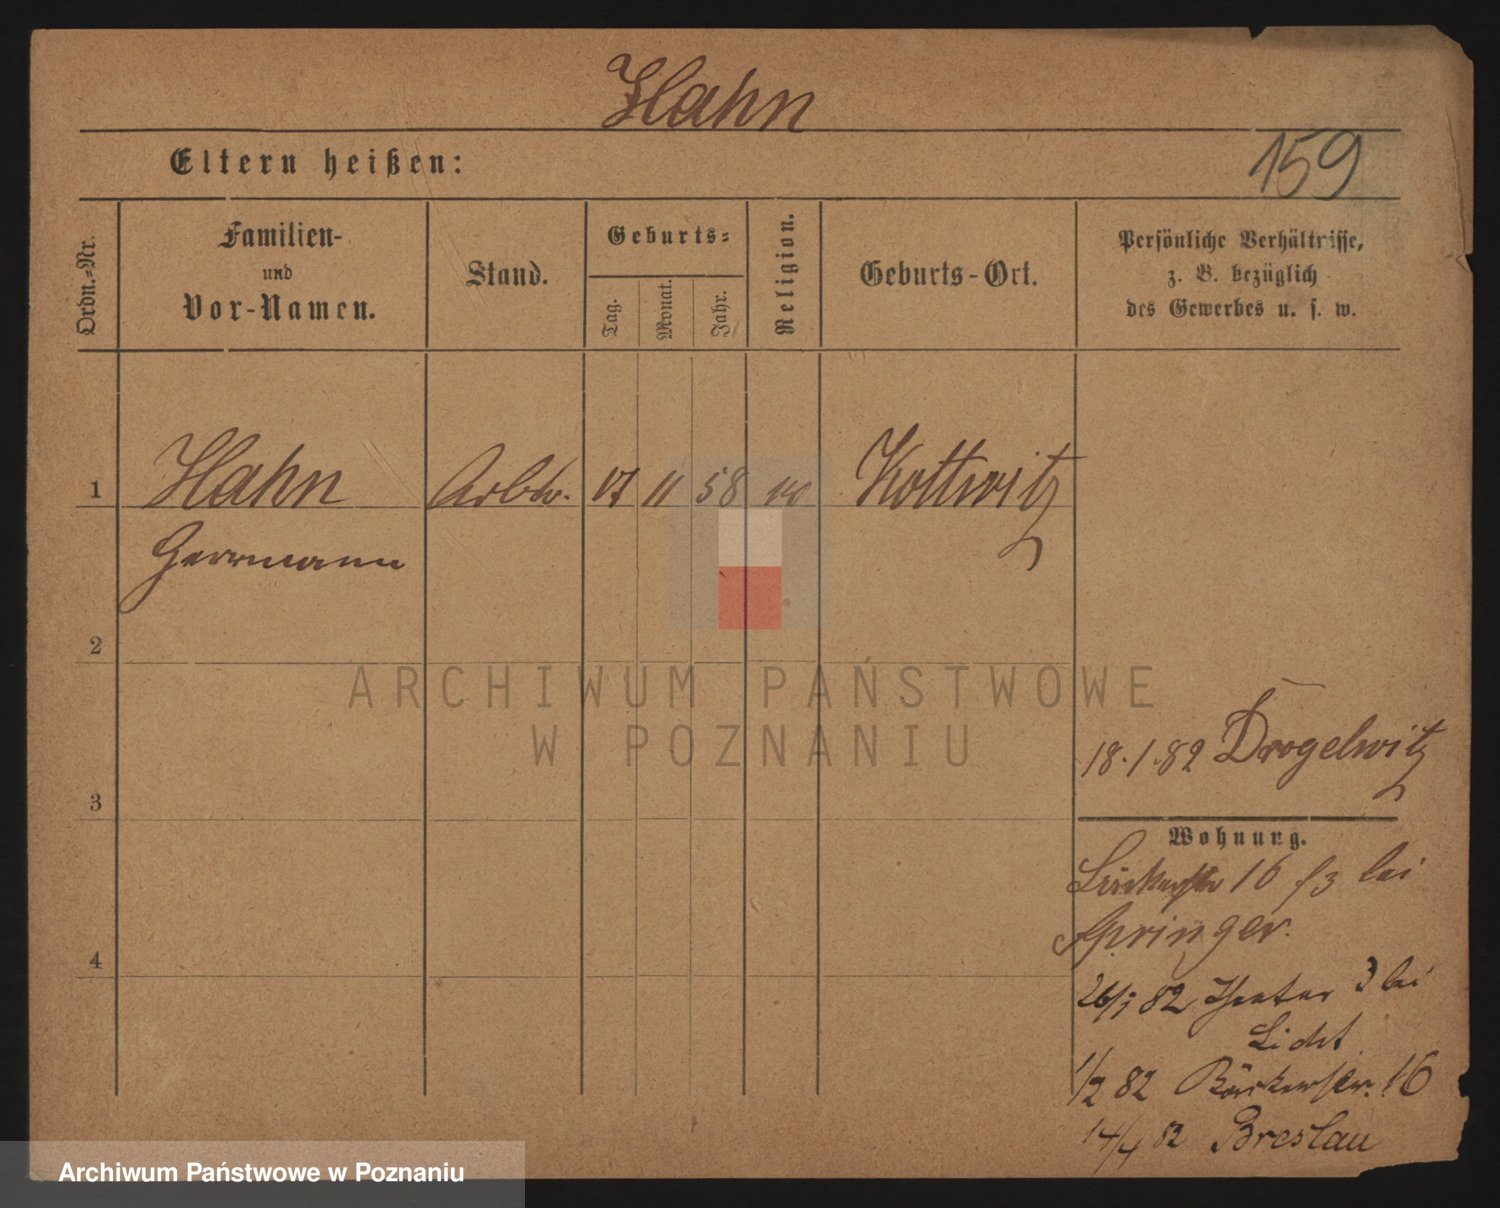 Hahn
159
Eltern heißen:
Ordn.-Nr.
Familien-
und
Vor-Namen.
Stand.
Geburts-
Tag.
Monat.
Jahr.
Religion.
Geburts-Ort.
Persönliche Verhältnisse,
z. B. bezüglich
des Gewerbes u. s. w.
1 Hahn Arbtr. 17 11 58 Kottwitz
Herrmann
2
ARCHIWUM PAŃSTWOWE
W POZNANIU
18.1.82 Drogelwitz
3
Wohnung.
16 f 3 bei
Springer.
4
26/1 82 Theater 3 bei
Licht
1/2 82 Bäckerstr. 16
14/4 82 Breslau
Archiwum Państwowe w Poznaniu